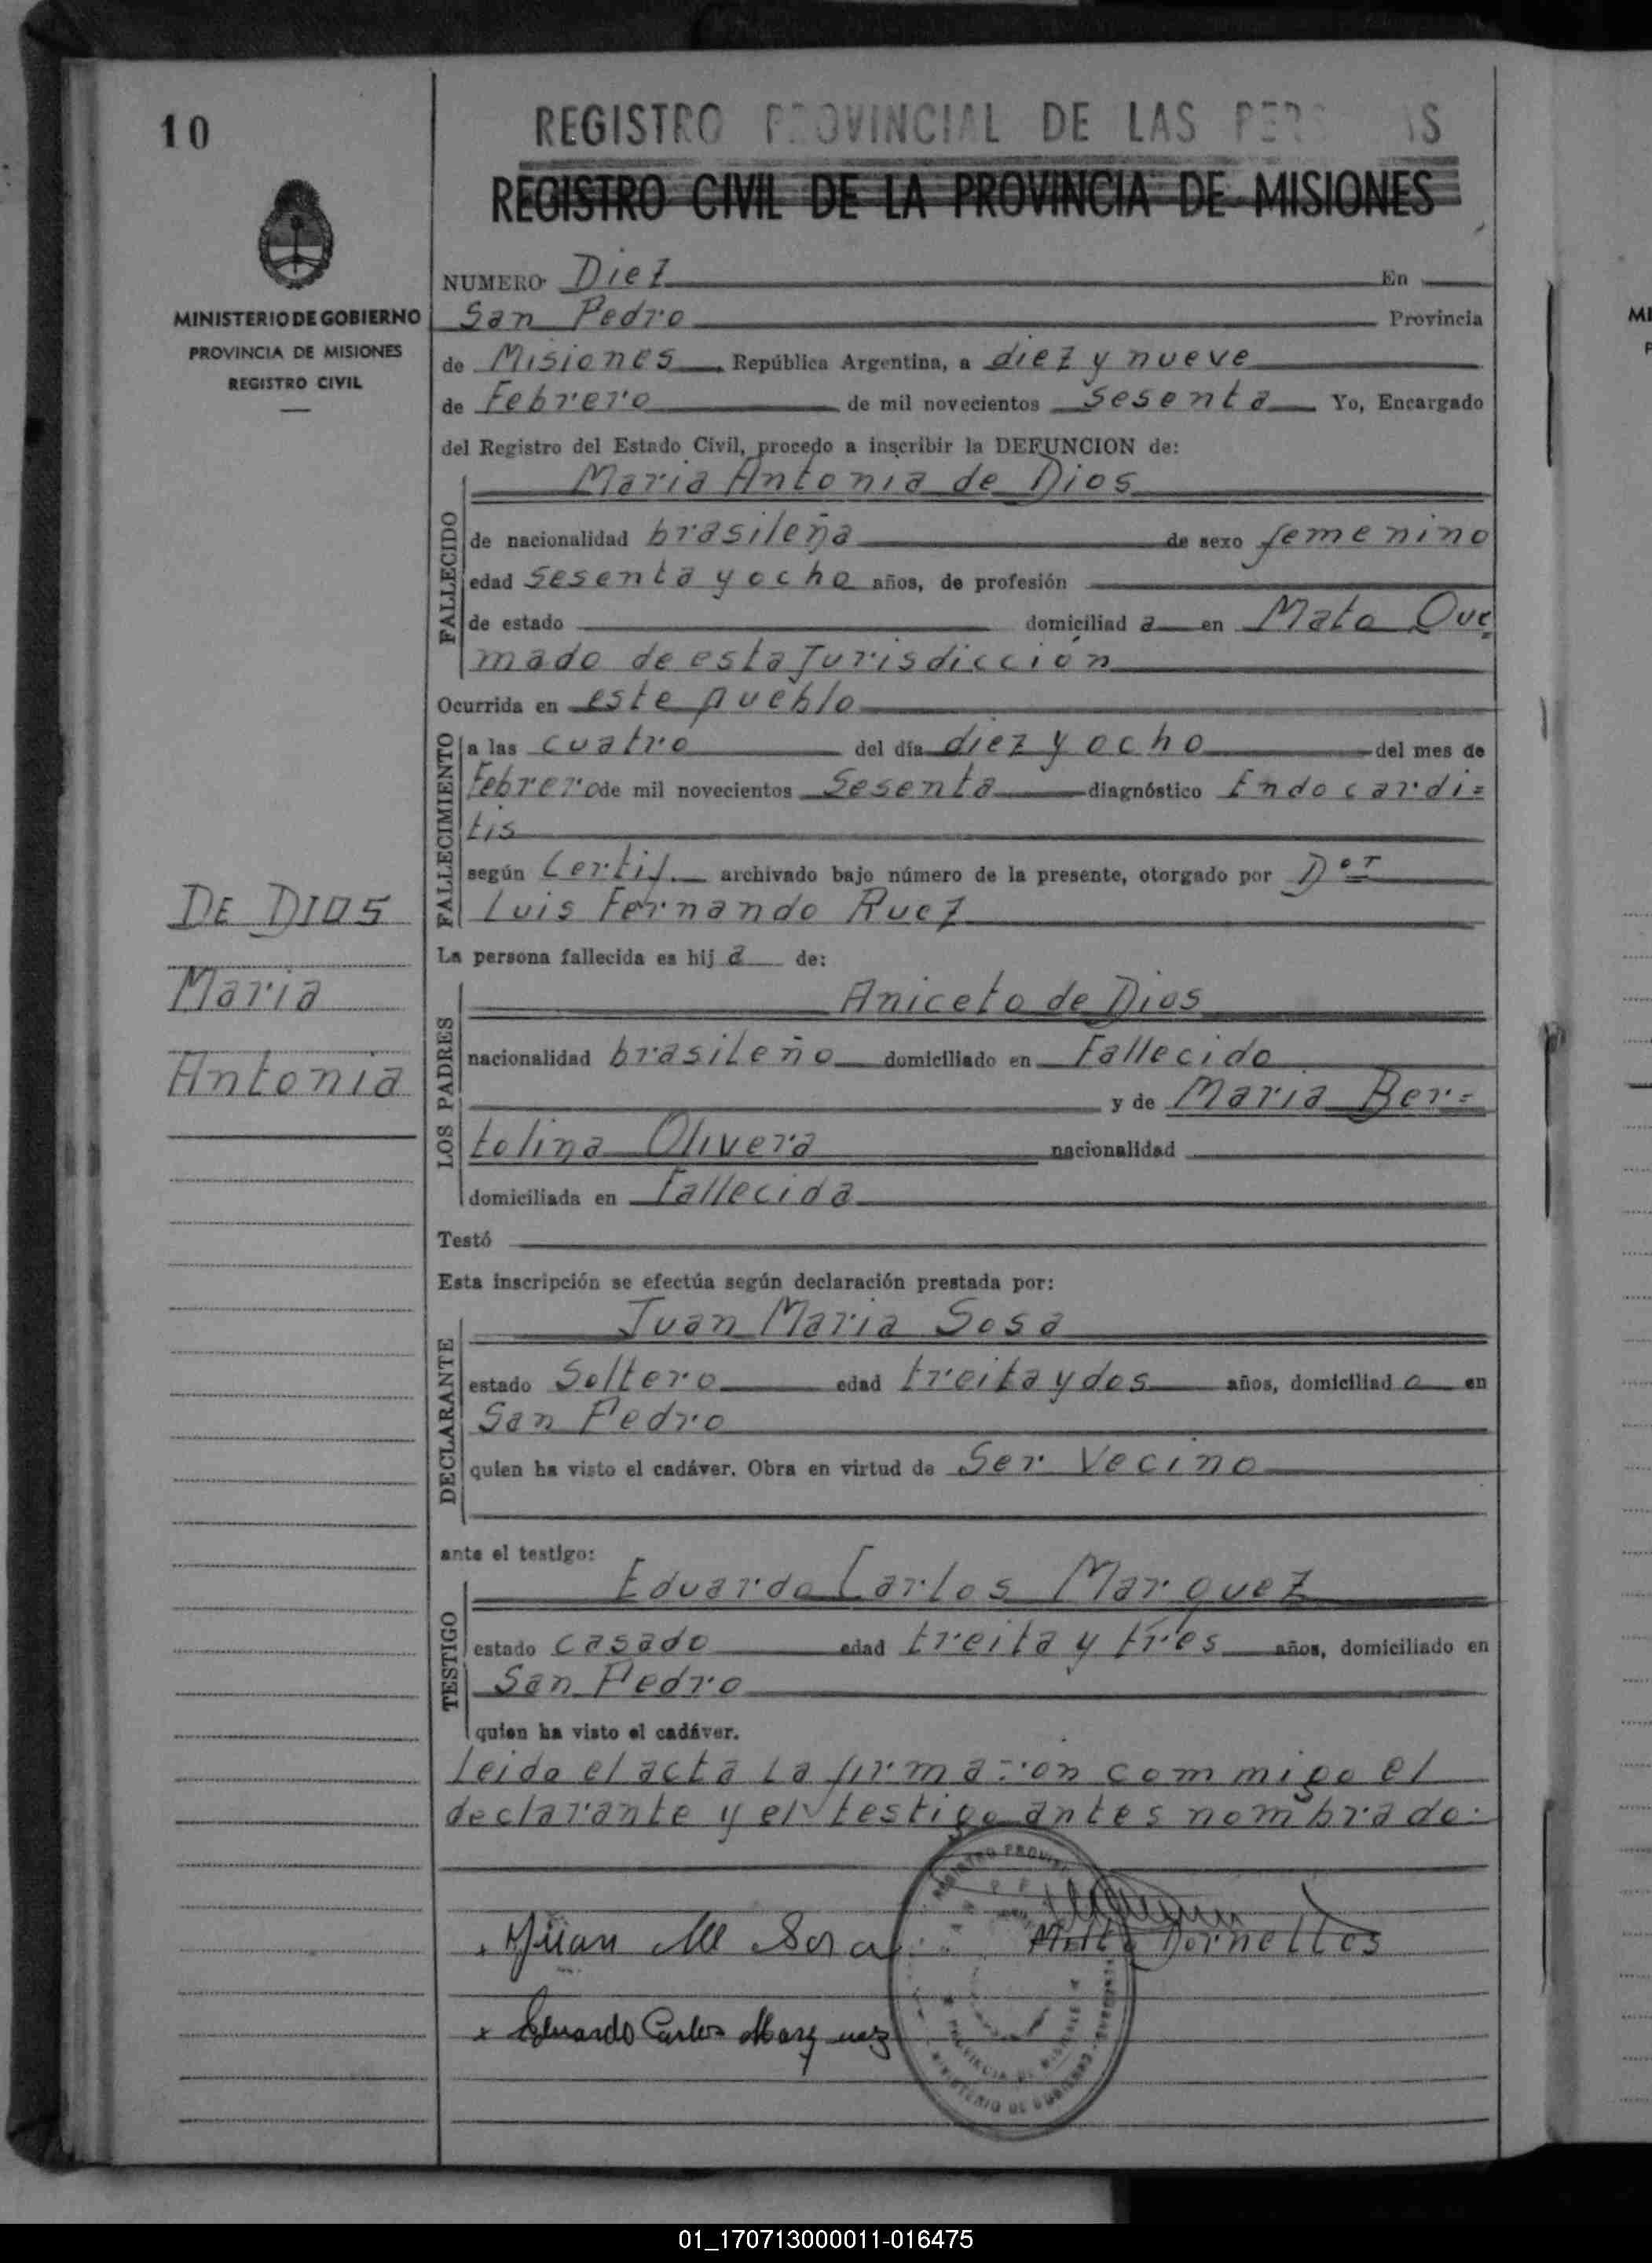 10
REGISTRO PROVINCIAL DE LAS
REGISTRO CIVIL DE LA PROVINCIA DE MISIONES
MINISTERIO DE GOBIERNO
PROVINCIA DE MISIONES
REGISTRO CIVIL
NUMERO Diez En
San Pedro Provincia
de Misiones República Argentina, a diez y nueve
de Febrero de mil novecientos Sesenta Yo, Encargado
del Registro del Estado Civil, procedo a inscribir la DEFUNCION de:
Maria Antonia de Dios
FALLECIDO
de nacionalidad brasileña de sexo femenino
edad Sesenta y ocho años, de profesión
de estado domiciliad a en Mato Que
mado de esta Jurisdicción
Ocurrida en este pueblo
FALLECIMIENTO
a las cuatro del día diez y ocho del mes de
Febrero de mil novecientos Sesenta diagnóstico Endocardi=
tis
según Certif. archivado bajo número de la presente, otorgado por Dor
Luis Fernando Ruez
La persona fallecida es hij a de:
DE DIOS
Maria
Antonia
LOS PADRES
Aniceto de Dios
nacionalidad brasileño domiciliado en Fallecido
y de Maria Ber=
tolina Olivera nacionalidad
domiciliada en Fallecida
Testó
Esta inscripción se efectúa según declaración prestada por:
DECLARANTE
Juan Maria Sosa
estado Soltero edad treita y dos años, domiciliad o en
San Pedro
quien ha visto el cadáver. Obra en virtud de Ser Vecino
ante el testigo:
TESTIGO
Eduardo Carlos Marquez
estado casado edad treita y tres años, domiciliado en
San Pedro
quien ha visto el cadáver.
Leido el acta la firmaron commigo el
declarante y el testigo antes nombrado.
Juan M Sosa
Dornelles
x Eduardo Carlos Marquez
01_170713000011-016475